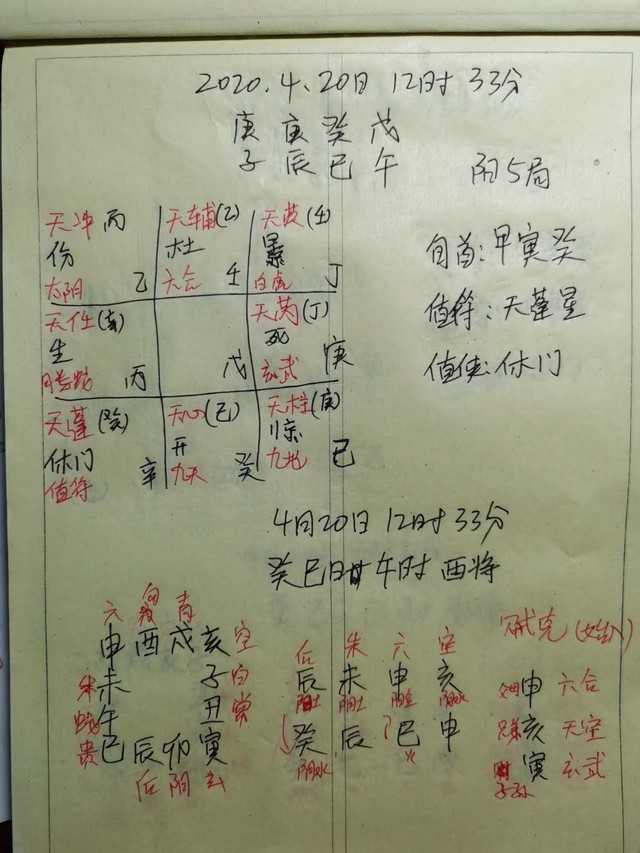 2020.4.20日 12时33分
庚 寅 癸 戊
子 辰 巳 午
阳5局
天冲 丙 天辅(乙) 天英(壬)
伤 杜 景
太阴 乙 六合 壬 白虎 丁
天任(辛) 天芮(丁)
生 死
螣蛇 丙 戊 玄武 庚
天蓬(癸) 天心(己) 天柱(庚)
休门 开 惊
值符 辛 九天 癸 九地 己
旬首:甲寅癸
值符:天蓬星
值使:休门
4月20日 12时33分
癸巳日 午时 酉将
六 勾 青
申 酉 戌 亥 空
朱 未 子 白
蛇 午 丑
贵 巳 辰 卯 寅
后 阴 玄
后 朱 六 空
辰 未 申 亥
阳土 阴土 阳金 阴水
癸 辰 巳 申
阴水 火
元首克(始入)
申 六合
兄弟 亥 天空
子孙 寅 玄武